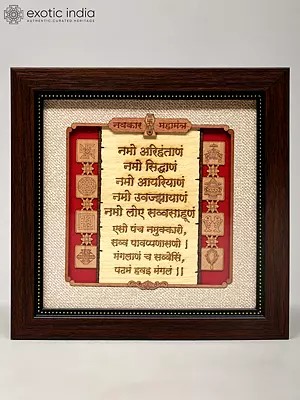 exotic india
AUTHENTIC.CURATED.HERITAGE
नवकार महामंत्र
नमो अरिहंताणं
नमो सिद्धाणं
नमो आयरियाणं
नमो उवज्झायाणं
नमो लोए सव्वसाहूणं
एसो पंच नमुक्कारो,
सव्व पावप्पणासणो ।
मंगलाणं च सव्वेसिं,
पढमं हवइ मंगलं ।।